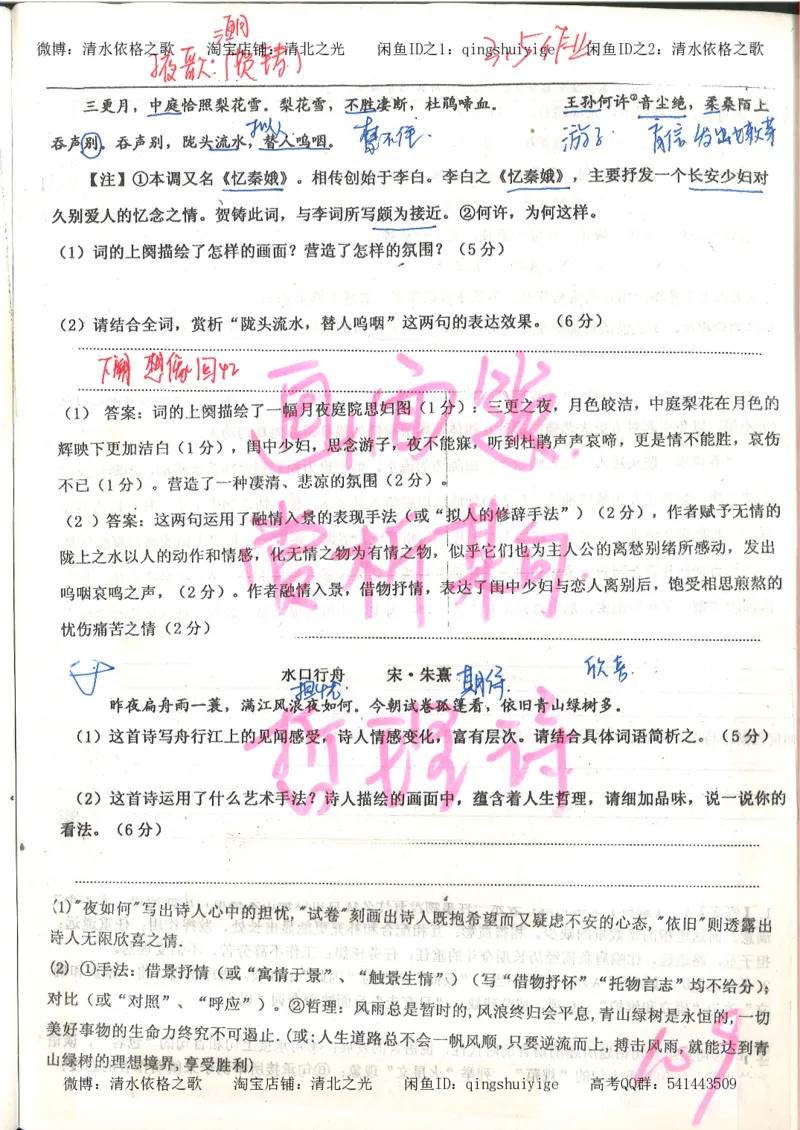 微博：清水依格之歌 淘宝店铺：清北之光 闲鱼ID之1：qingshuiyige 闲鱼ID之2：清水依格之歌
3.5作业
三更月，中庭恰照梨花雪。梨花雪，不胜凄断，杜鹃啼血。 王孙何许②音尘绝，柔桑陌上
吞声别。吞声别，陇头流水，替人呜咽。
拟人
禁不住.
游子
音信
【注】①本调又名《忆秦娥》。相传创始于李白。李白之《忆秦娥》，主要抒发一个长安少妇对
久别爱人的忆念之情。贺铸此词，与李词所写颇为接近。②何许，为何这样。
（1）词的上阕描绘了怎样的画面？营造了怎样的氛围？（5分）
（2）请结合全词，赏析“陇头流水，替人呜咽”这两句的表达效果。（6分）
下阕 想像回忆
画面题.
（1） 答案：词的上阕描绘了一幅月夜庭院思妇图（1分）：三更之夜，月色皎洁，中庭梨花在月色的
辉映下更加洁白（1分），闺中少妇，思念游子，夜不能寐，听到杜鹃声声哀啼，更是情不能胜，哀伤
不已（1分）。营造了一种凄清、悲凉的氛围（2分）。
赏析某句
（2 ）答案：这两句运用了融情入景的表现手法（或“拟人的修辞手法”）（2分），作者赋予无情的
陇上之水以人的动作和情感，化无情之物为有情之物，似乎它们也为主人公的离愁别绪所感动，发出
呜咽哀鸣之声，（2分）。作者融情入景，借物抒情，表达了闺中少妇与恋人离别后，饱受相思煎熬的
忧伤痛苦之情（2分）
水口行舟 宋·朱熹
担忧
期待
欣喜.
昨夜扁舟雨一蓑，满江风浪夜如何。今朝试卷孤篷看，依旧青山绿树多。
哲理诗
（1）这首诗写舟行江上的见闻感受，诗人情感变化，富有层次。请结合具体词语简析之。（5分）
（2）这首诗运用了什么艺术手法？诗人描绘的画面中，蕴含着人生哲理，请细加品味，说一说你的
看法。（6分）
(1)"夜如何"写出诗人心中的担忧，"试卷"刻画出诗人既抱希望而又疑虑不安的心态，"依旧"则透露出
诗人无限欣喜之情.
(2) ①手法：借景抒情（或“寓情于景”、“触景生情”）（写“借物抒怀”“托物言志”均不给分）；
对比（或“对照”、“呼应”）。②哲理：风雨总是暂时的,风浪终归会平息,青山绿树是永恒的,一切
美好事物的生命力终究不可遏止.(或:人生道路总不会一帆风顺,只要逆流而上,搏击风雨,就能达到青
山绿树的理想境界,享受胜利)
微博：清水依格之歌 淘宝店铺：清北之光 闲鱼ID：qingshuiyige 高考QQ群：541443509